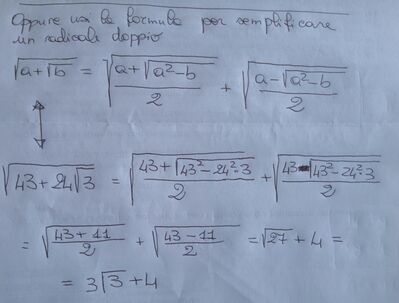 Oppure usi la formula per semplificare
un radicali doppio
√(a+√b) = √((a+√(a²-b))/2) + √((a-√(a²-b))/2)
√(43+24√3) = √((43+√(43²-24²·3))/2) + √((43-√(43²-24²·3))/2)
= √((43+11)/2) + √((43-11)/2) = √27 + 4 =
= 3√3 + 4